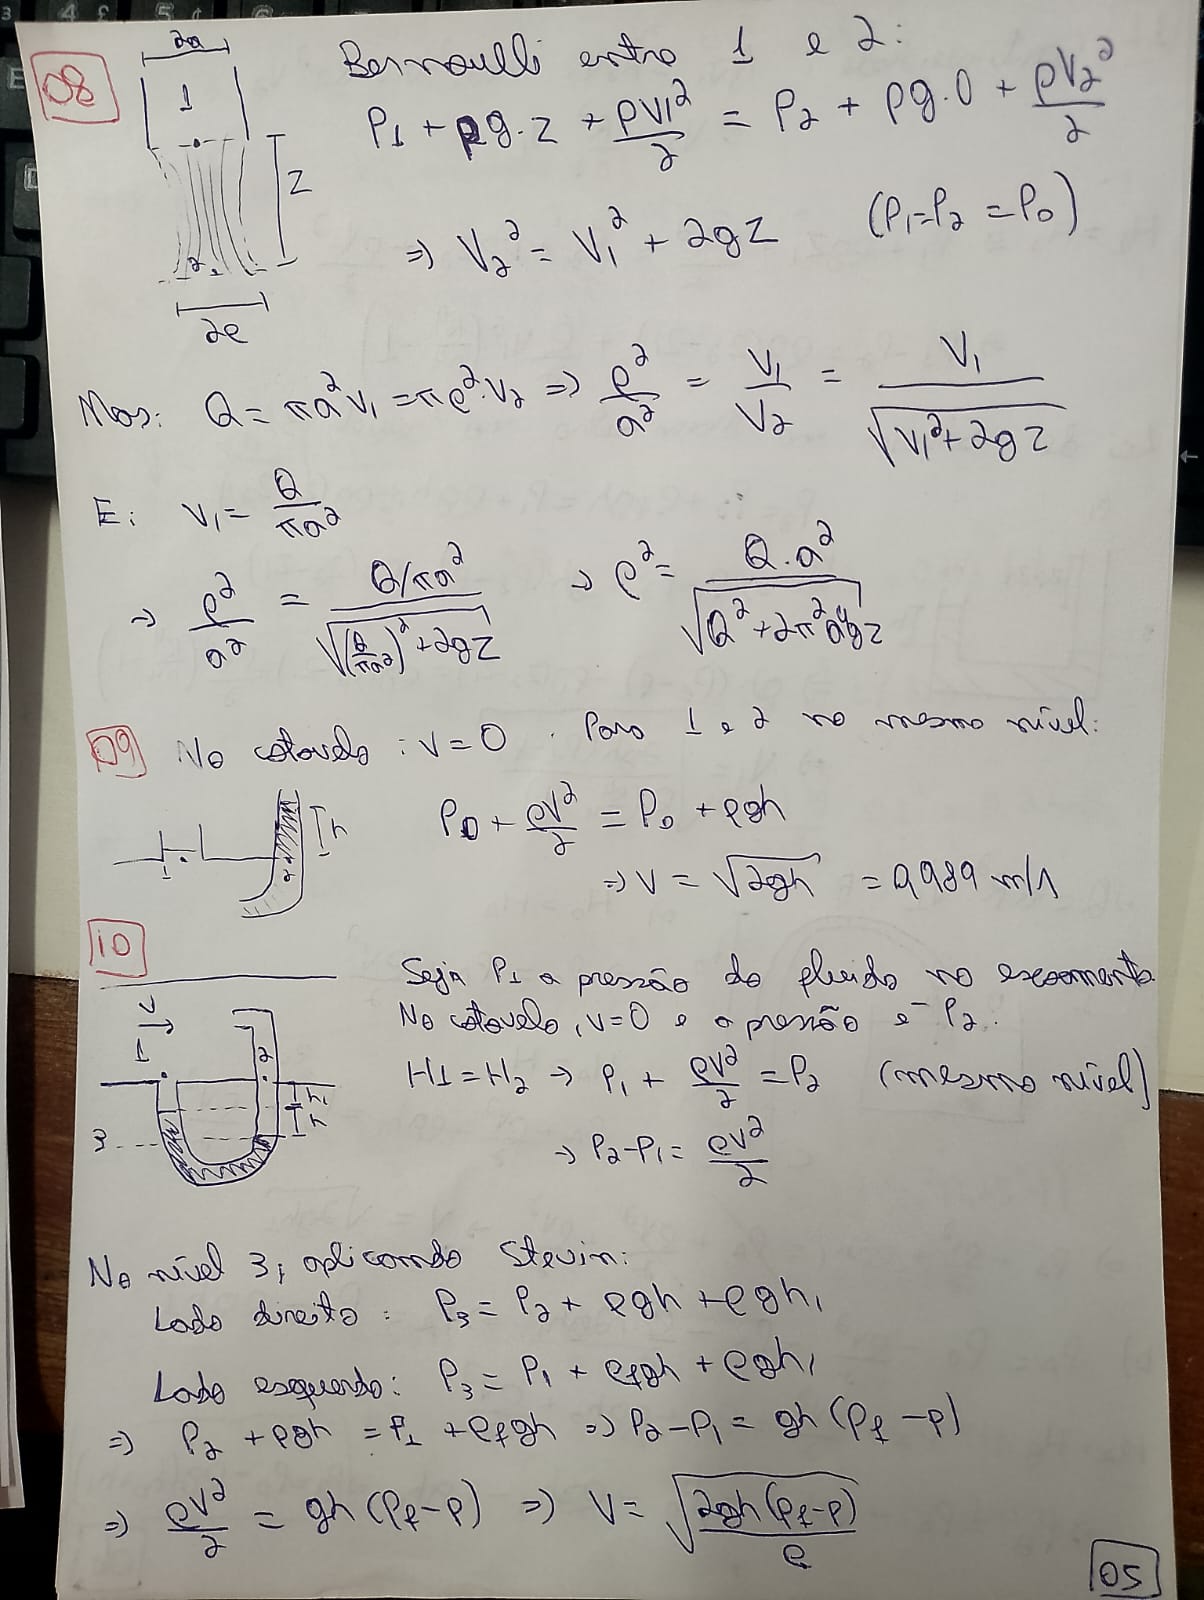 08
2a
1
Z
2
2e
Bernoulli entre 1 e 2:
P1 + ρg.z + ρV1²/2 = P2 + ρg.0 + ρV2²/2
⇒ V2² = V1² + 2gZ (P1=P2 = P0)
Mas: Q = πa²V1 = πρ².V2 ⇒ ρ²/a² = V1/V2 = V1/√(V1²+2gZ)
E: V1 = Q/πa²
⇒ ρ²/a² = Q/πa²/√((Q/πa²)²+2gZ) ⇒ ρ² = Q.a²/√(Q²+2π²a⁴gz)
09 No cotovelo: v=0. Para 1 e 2 no mesmo nível:
1
2
h
P0 + ρV²/2 = P0 + ρgh
⇒ V = √2gh = 0,989 m/s
10
V
1
2
h1
h
3
Seja P1 a pressão do fluido no escoamento.
No cotovelo, v=0 e a pressão é P2.
H1=H2 ⇒ P1 + ρV²/2 = P2 (mesmo nível)
⇒ P2-P1 = ρV²/2
No nível 3, aplicando Stevin:
Lado direito: P3 = P2 + ρgh + ρgh1
Lado esquerdo: P3 = P1 + ρfgh + ρgh1
⇒ P2 + ρgh = P1 + ρfgh ⇒ P2-P1 = gh(ρf-ρ)
⇒ ρV²/2 = gh(ρf-ρ) ⇒ V = √(2gh(ρf-ρ)/ρ)
05